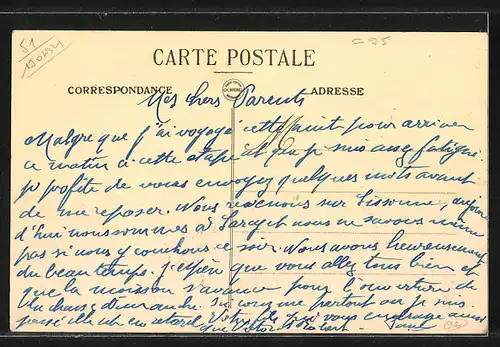 51
190191
C 95
CARTE POSTALE
CORRESPONDANCE
ADRESSE
Mes chers Parents
Malgre que j'ai voyagé cette nuit pour arriver
ce matin a cette etape et que je suis assez fatigué
je profite de vous envoyer quelques mots avant
de me reposer. Nous revenons sur Sissonne, aujour
d'hui nous sommes a et nous ne savons même
pas si nous y couchons ce soir. Nous avons heureusement
du beau temps. J'espère que vous allez tous bien et
que la moisson s'avance pour l'ouverture de
la chasse dimanche partout ou je suis
passé elle est en retard. Votre fils qui vous embrasse ainsi
que Victor Robert. Paul